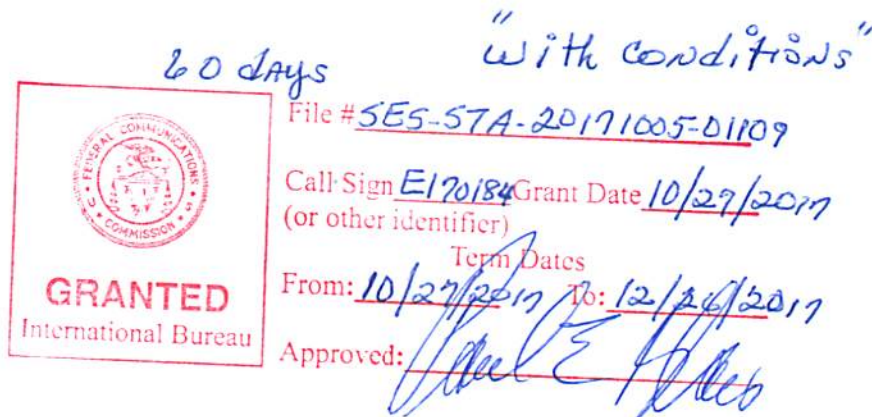 60 days
"with conditions"
FEDERAL COMMUNICATIONS COMMISSION
GRANTED
International Bureau
File # SES-STA-20171005-01109
Call Sign E170184 Grant Date 10/27/2017
(or other identifier)
Term Dates
From: 10/27/2017 To: 12/26/2017
Approved: